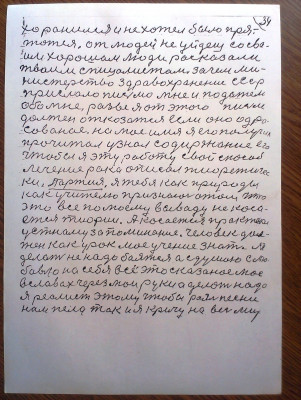 34
хоранился и не хотел было пря-
тотся, от людей не уйдеш сосво-
им хорошом люди расказали
твоим специалистам зачем ми-
нистерство здравохранение СССР
прислало письмо мне и подател
обо мне, разве я от этого письма
должен отказотся если оно одро-
сованое на мое имя я его получил
прочитал узнал содержание его
чтобы я эту работу свой способ
легение рака описал теоретичес-
ки, Партия, я тебя как природы
как учителю признаю отой, что
это всё по моему выводу не коса-
ется теории. А косается практики
устному запоминание. Человек дол-
жен как урок мое учение знать. А
делать не надо боятся а с душою
на себя всё это сказаное мое
в славах через мои руки а делат надо
я реалист этому чтобы разв песни
нам пела так и я кричу на весь мир